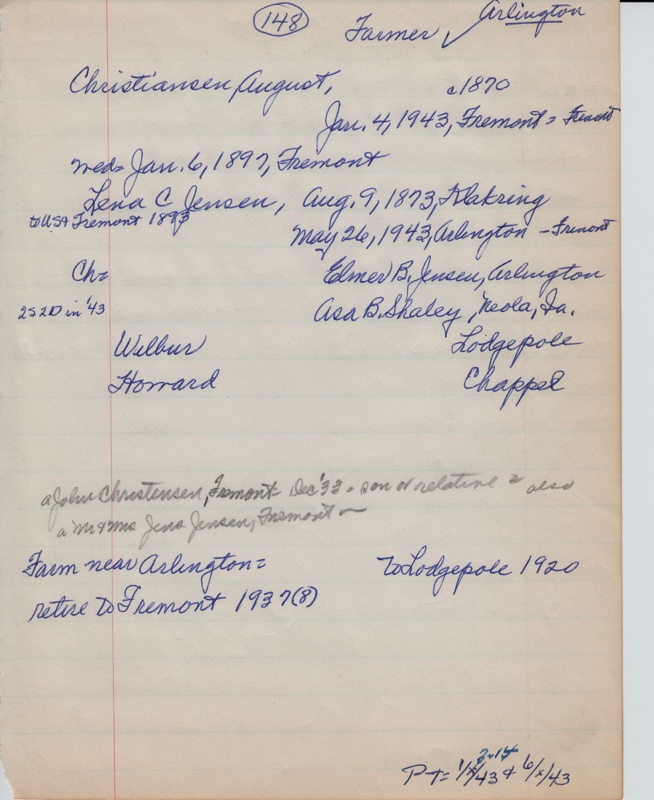 148
Farmer, Arlington
Christiansen, August, c1870
Jan. 4, 1943, Fremont = Fremont
wed= Jan. 6, 1897, Fremont
Lena C Jensen, Aug. 9, 1873, Klakring
to USA Fremont 1893
May 26, 1943, Arlington - Fremont
Ch= Elmer B. Jensen, Arlington
2S 2D in '43 Asa B. Shaley, Neola, Ia.
Wilbur Lodgepole
Howard Chappel
a John Christensen, Fremont= Dec '33 = son or relative = also
a Mr & Mrs Jens Jensen, Fremont -
Farm near Arlington= to Lodgepole 1920
retire to Fremont 1937(8)
2-14
PT= 1/x/43 & 6/x/43